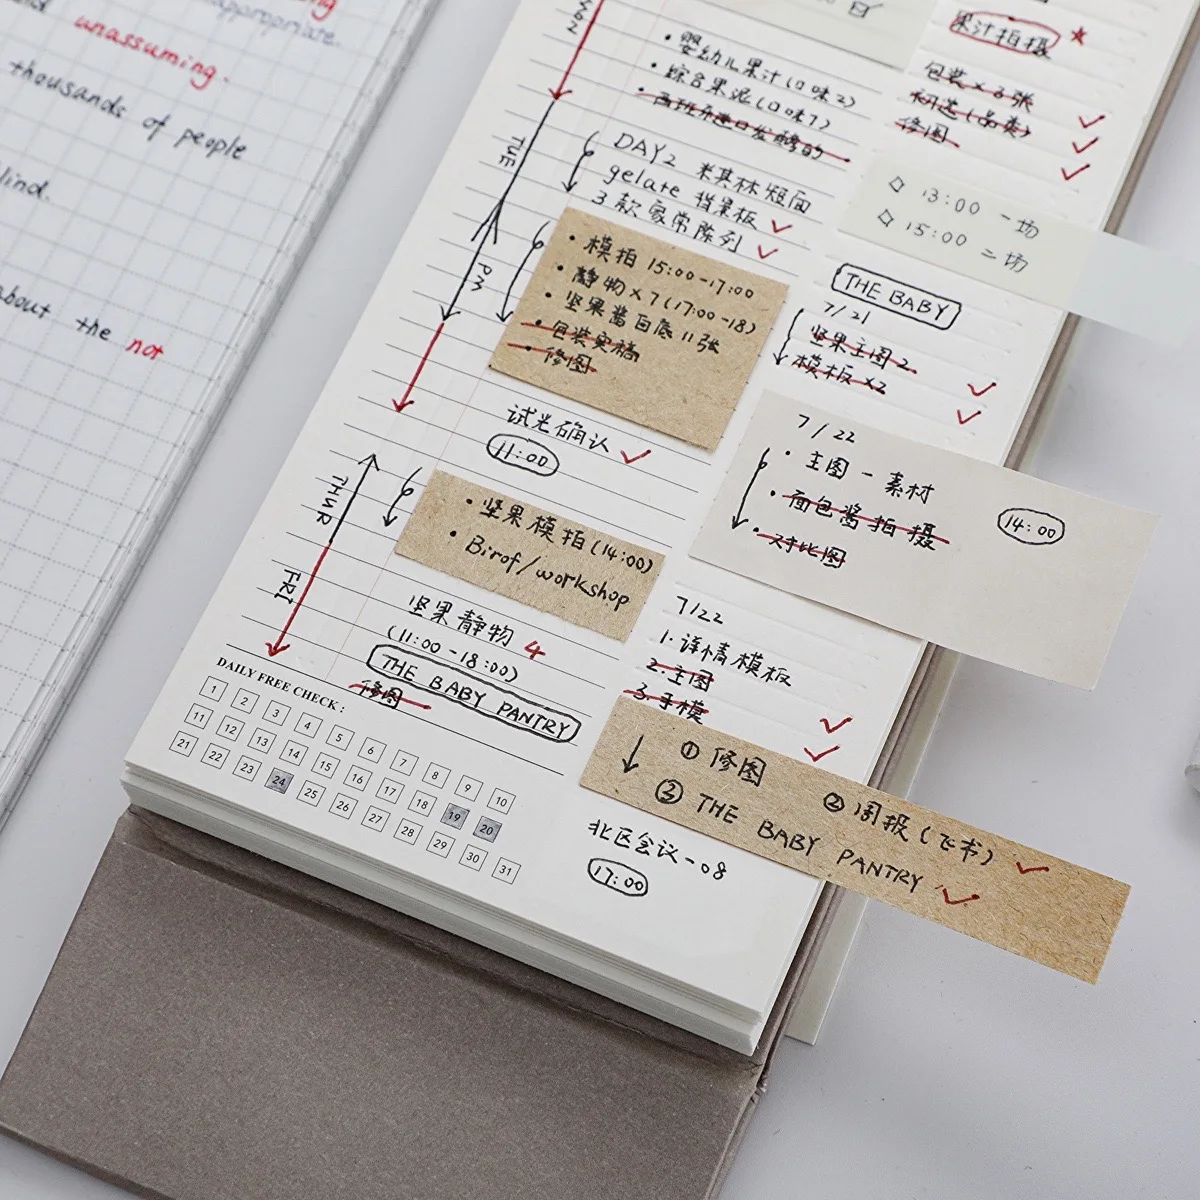 inappropriate.
unassuming.
thousands of people
about the not
TUE
PM
THUR
FRI
• 婴幼儿果汁(口味2)
• 综合果泥(口味7)
DAY2 米其林短面
gelate 背景板
3款家常陈列
• 模拍 15:00-17:00
• 静物×7(17:00-18)
• 坚果酱白底11张
• 包装实稿
• 修图
试光确认
11:00
• 坚果模拍(14:00)
• Birof/workshop
坚果静物 4
(11:00-18:00)
THE BABY PANTRY
修图
DAILY FREE CHECK :
1 2 3 4 5 6 7 8 9 10
11 12 13 14 15 16 17 18 19 20
21 22 23 24 25 26 27 28 29 30 31
果汁拍摄
包装×3张
修图
13:00 一场
15:00 二场
THE BABY
7/21
坚果主图2
模板×2
7/22
• 主图一素材
• 面包酱拍摄
• 对比图
14:00
7/22
1. 详情模板
2. 主图
3. 手模
① 修图
② 周报(飞书)
③ THE BABY PANTRY
北区会议-08
17:00